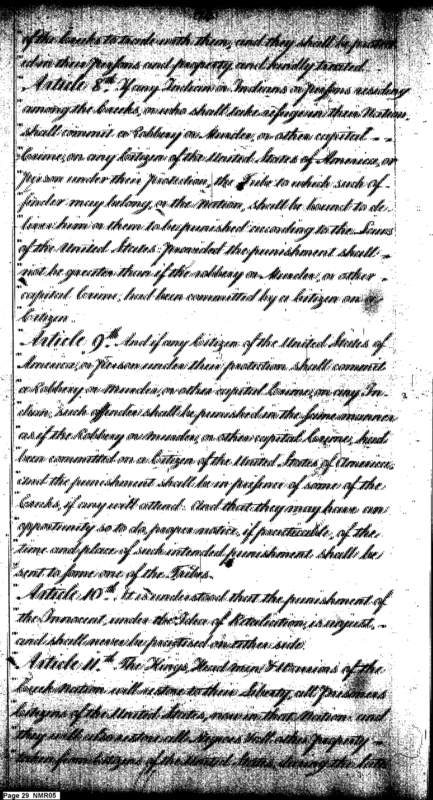 of the Creeks to trade with them, and they shall be protect
ed in their Persons and property and kindly treated.
Article 8th. If any Indian or Indians or persons residing
among the Creeks, or who shall take refuge in their Nation
shall commit a Robbery or Murder, or other capital - -
Crime, on any Citizen of the United States of America, or
person under their protection, the Tribe to which such of-
fender may belong, or the Nation, shall be bound to de-
liver him or them to be punished according to the Laws
of the United States: Provided the punishment shall -
not be greater than if the robbery or Murder, or other -
capital Crime, had been committed by a Citizen on a
Citizen
Article 9th And if any Citizen of the United States of
America, or person under their protection shall commit
a Robbery or Murder, or other capital Crime, on any In-
dian, such offender shall be punished in the same manner
as if the Robbery or Murder, or other capital Crime, had
been committed on a Citizen of the United States of America,
and the punishment shall be in presence of some of the
Creeks, if any will attend. And that they may have an
opportunity so to do, proper notice, if practicable, of the
time and place of such intended punishment shall be
sent to some one of the Tribes.
Article 10th. It is understood that the punishment of
the Innocent, under the Idea of Retaliation, is unjust, -
and shall never be practised on either side.
Article 11th The Kings, Head men & Warriors of the
Creek Nation will restore to their Liberty, all Prisoners
Citizens of the United States, now in that Nation: and
they will also restore all Negroes & all other Property -
taken from Citizens of the United States, during the late
Page 29 NMR05